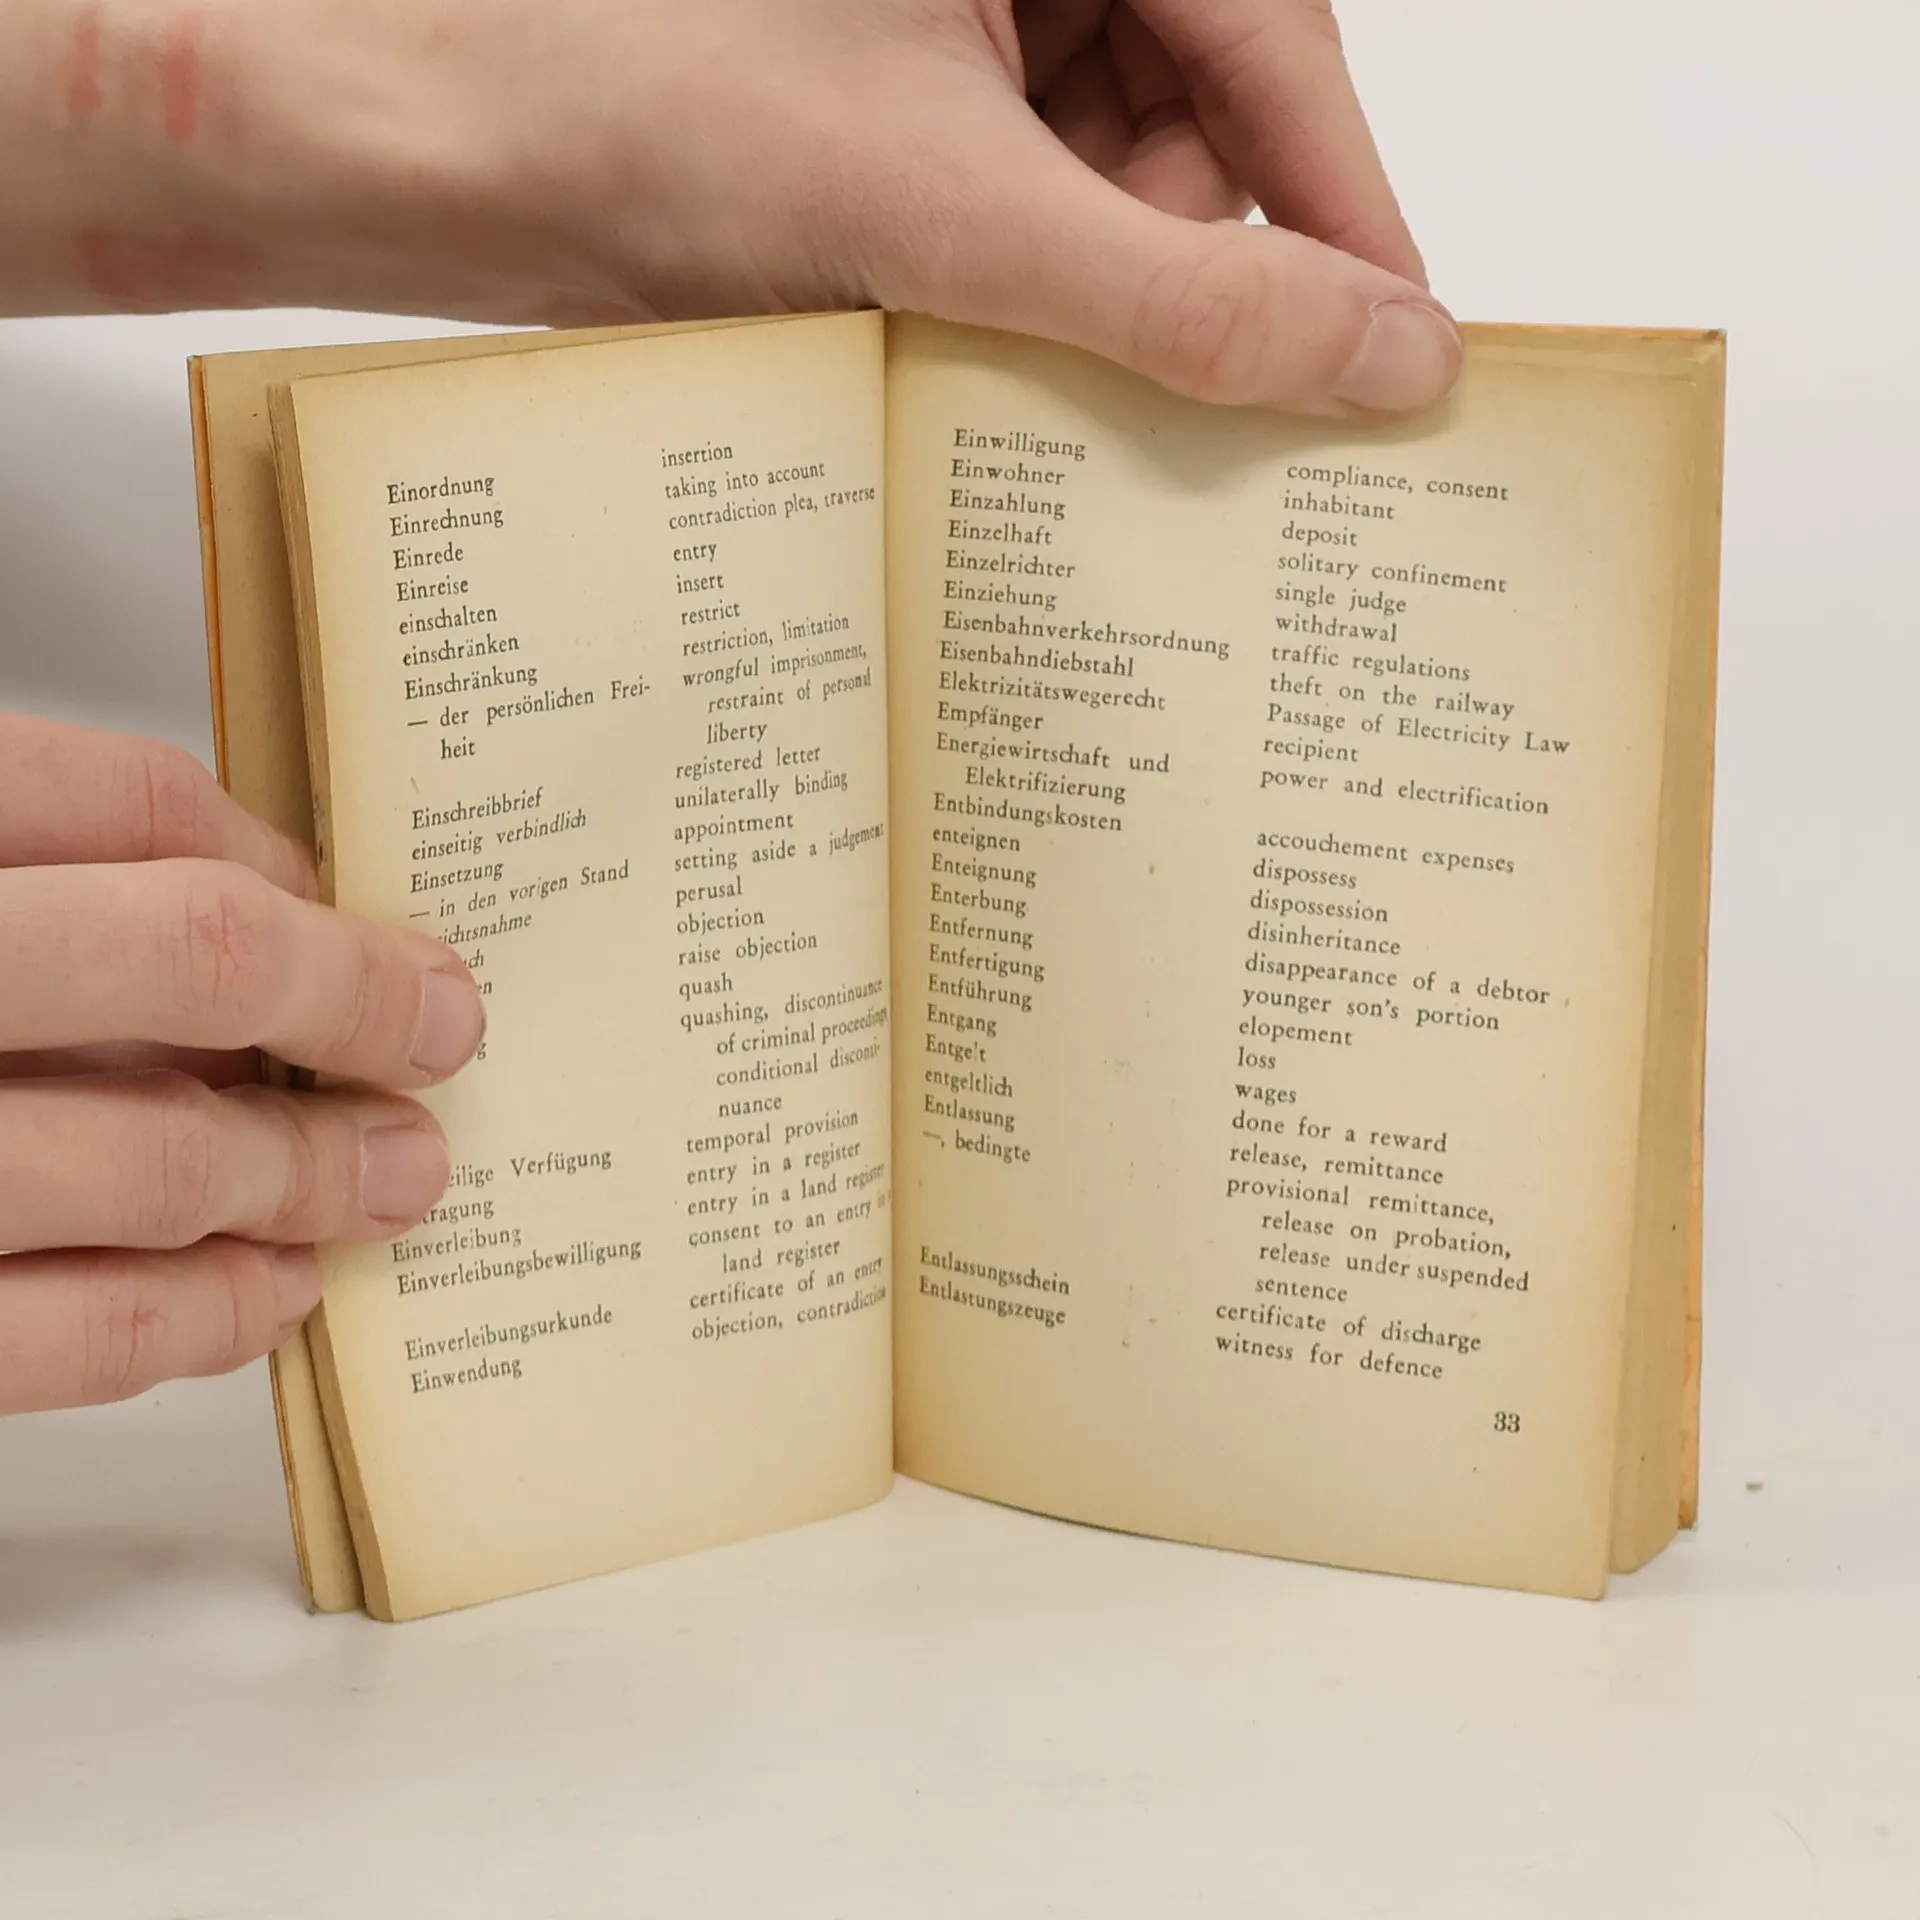 Einordnung insertion
Einrechnung taking into account
Einrede contradiction plea, traverse
Einreise entry
einschalten insert
einschränken restrict
Einschränkung restriction, limitation
— der persönlichen Frei- wrongful imprisonment,
heit restraint of personal
liberty
Einschreibbrief registered letter
einseitig verbindlich unilaterally binding
Einsetzung appointment
— in den vorigen Stand setting aside a judgement
perusal
objection
raise objection
quash
quashing, discontinuance
of criminal proceedings
conditional disconti-
nuance
Verfügung temporal provision
entry in a register
Einverleibung entry in a land register
Einverleibungsbewilligung consent to an entry
land register
Einverleibungsurkunde certificate of an entry
Einwendung objection, contradiction
Einwilligung compliance, consent
Einwohner inhabitant
Einzahlung deposit
Einzelhaft solitary confinement
Einzelrichter single judge
Einziehung withdrawal
Eisenbahnverkehrsordnung traffic regulations
Eisenbahndiebstahl theft on the railway
Elektrizitätswegerecht Passage of Electricity Law
Empfänger recipient
Energiewirtschaft und power and electrification
Elektrifizierung
Entbindungskosten accouchement expenses
enteignen dispossess
Enteignung dispossession
Enterbung disinheritance
Entfernung disappearance of a debtor
Entfertigung younger son's portion
Entführung elopement
Entgang loss
Entgelt wages
entgeltlich done for a reward
Entlassung release, remittance
—, bedingte provisional remittance,
release on probation,
release under suspended
sentence
Entlassungsschein certificate of discharge
Entlastungszeuge witness for defence
33